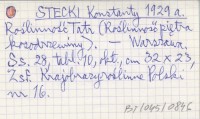 STECKI Konstanty 1929 a.
Roślinność Tatr (Roślinność piętra
kosodrzewiny). — Warszawa.
Ss. 28, tabl. 10, okt., cm 32 x 23,
Zsf. Krajobrazy roślinne Polski
nr 16.
BT/045/0846